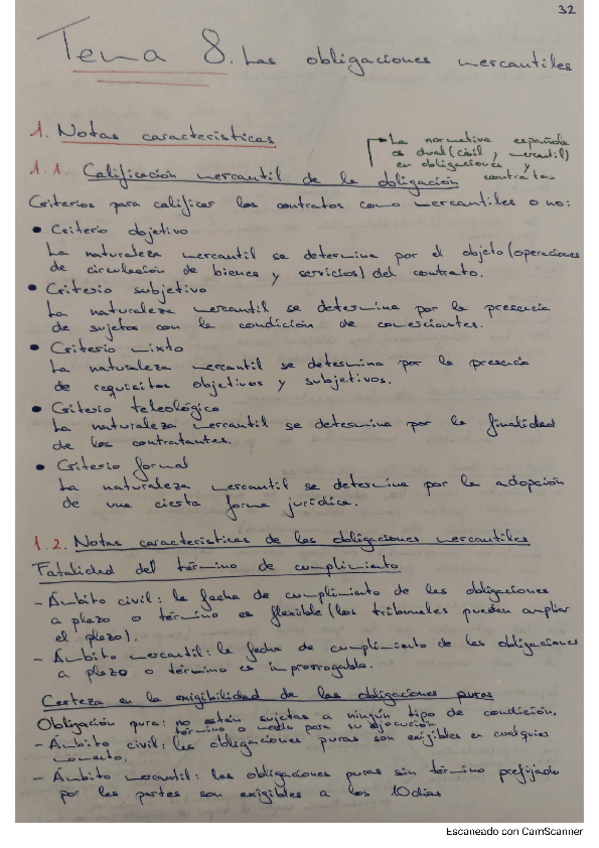 32
Tema 8. Las obligaciones mercantiles
1. Notas características
La normativa española
es dual (civil y mercantil)
en obligaciones y
contratos
1.1. Calificación mercantil de la obligación
Criterios para calificar los contratos como mercantiles o no:
• Criterio objetivo
La naturaleza mercantil se determina por el objeto (operaciones
de circulación de bienes y servicios) del contrato.
• Criterio subjetivo
La naturaleza mercantil se determina por la presencia
de sujetos con la condición de comerciantes.
• Criterio mixto
La naturaleza mercantil se determina por la presencia
de requisitos objetivos y subjetivos.
• Criterio teleológico
La naturaleza mercantil se determina por la finalidad
de los contratantes.
• Criterio formal
La naturaleza mercantil se determina por la adopción
de una cierta forma jurídica.
1.2. Notas características de las obligaciones mercantiles
Fatalidad del término de cumplimiento
- Ámbito civil: la fecha de cumplimiento de las obligaciones
a plazo o término es flexible (los tribunales pueden ampliar
el plazo).
- Ámbito mercantil: la fecha de cumplimiento de las obligaciones
a plazo o término es improrrogable.
Certeza en la exigibilidad de las obligaciones puras
Obligación pura: no están sujetas a ningún tipo de condición,
término o modo para su ejecución.
- Ámbito civil: las obligaciones puras son exigibles en cualquier
momento.
- Ámbito mercantil: las obligaciones puras sin término prefijado
por las partes son exigibles a los 10 días
Escaneado con CamScanner